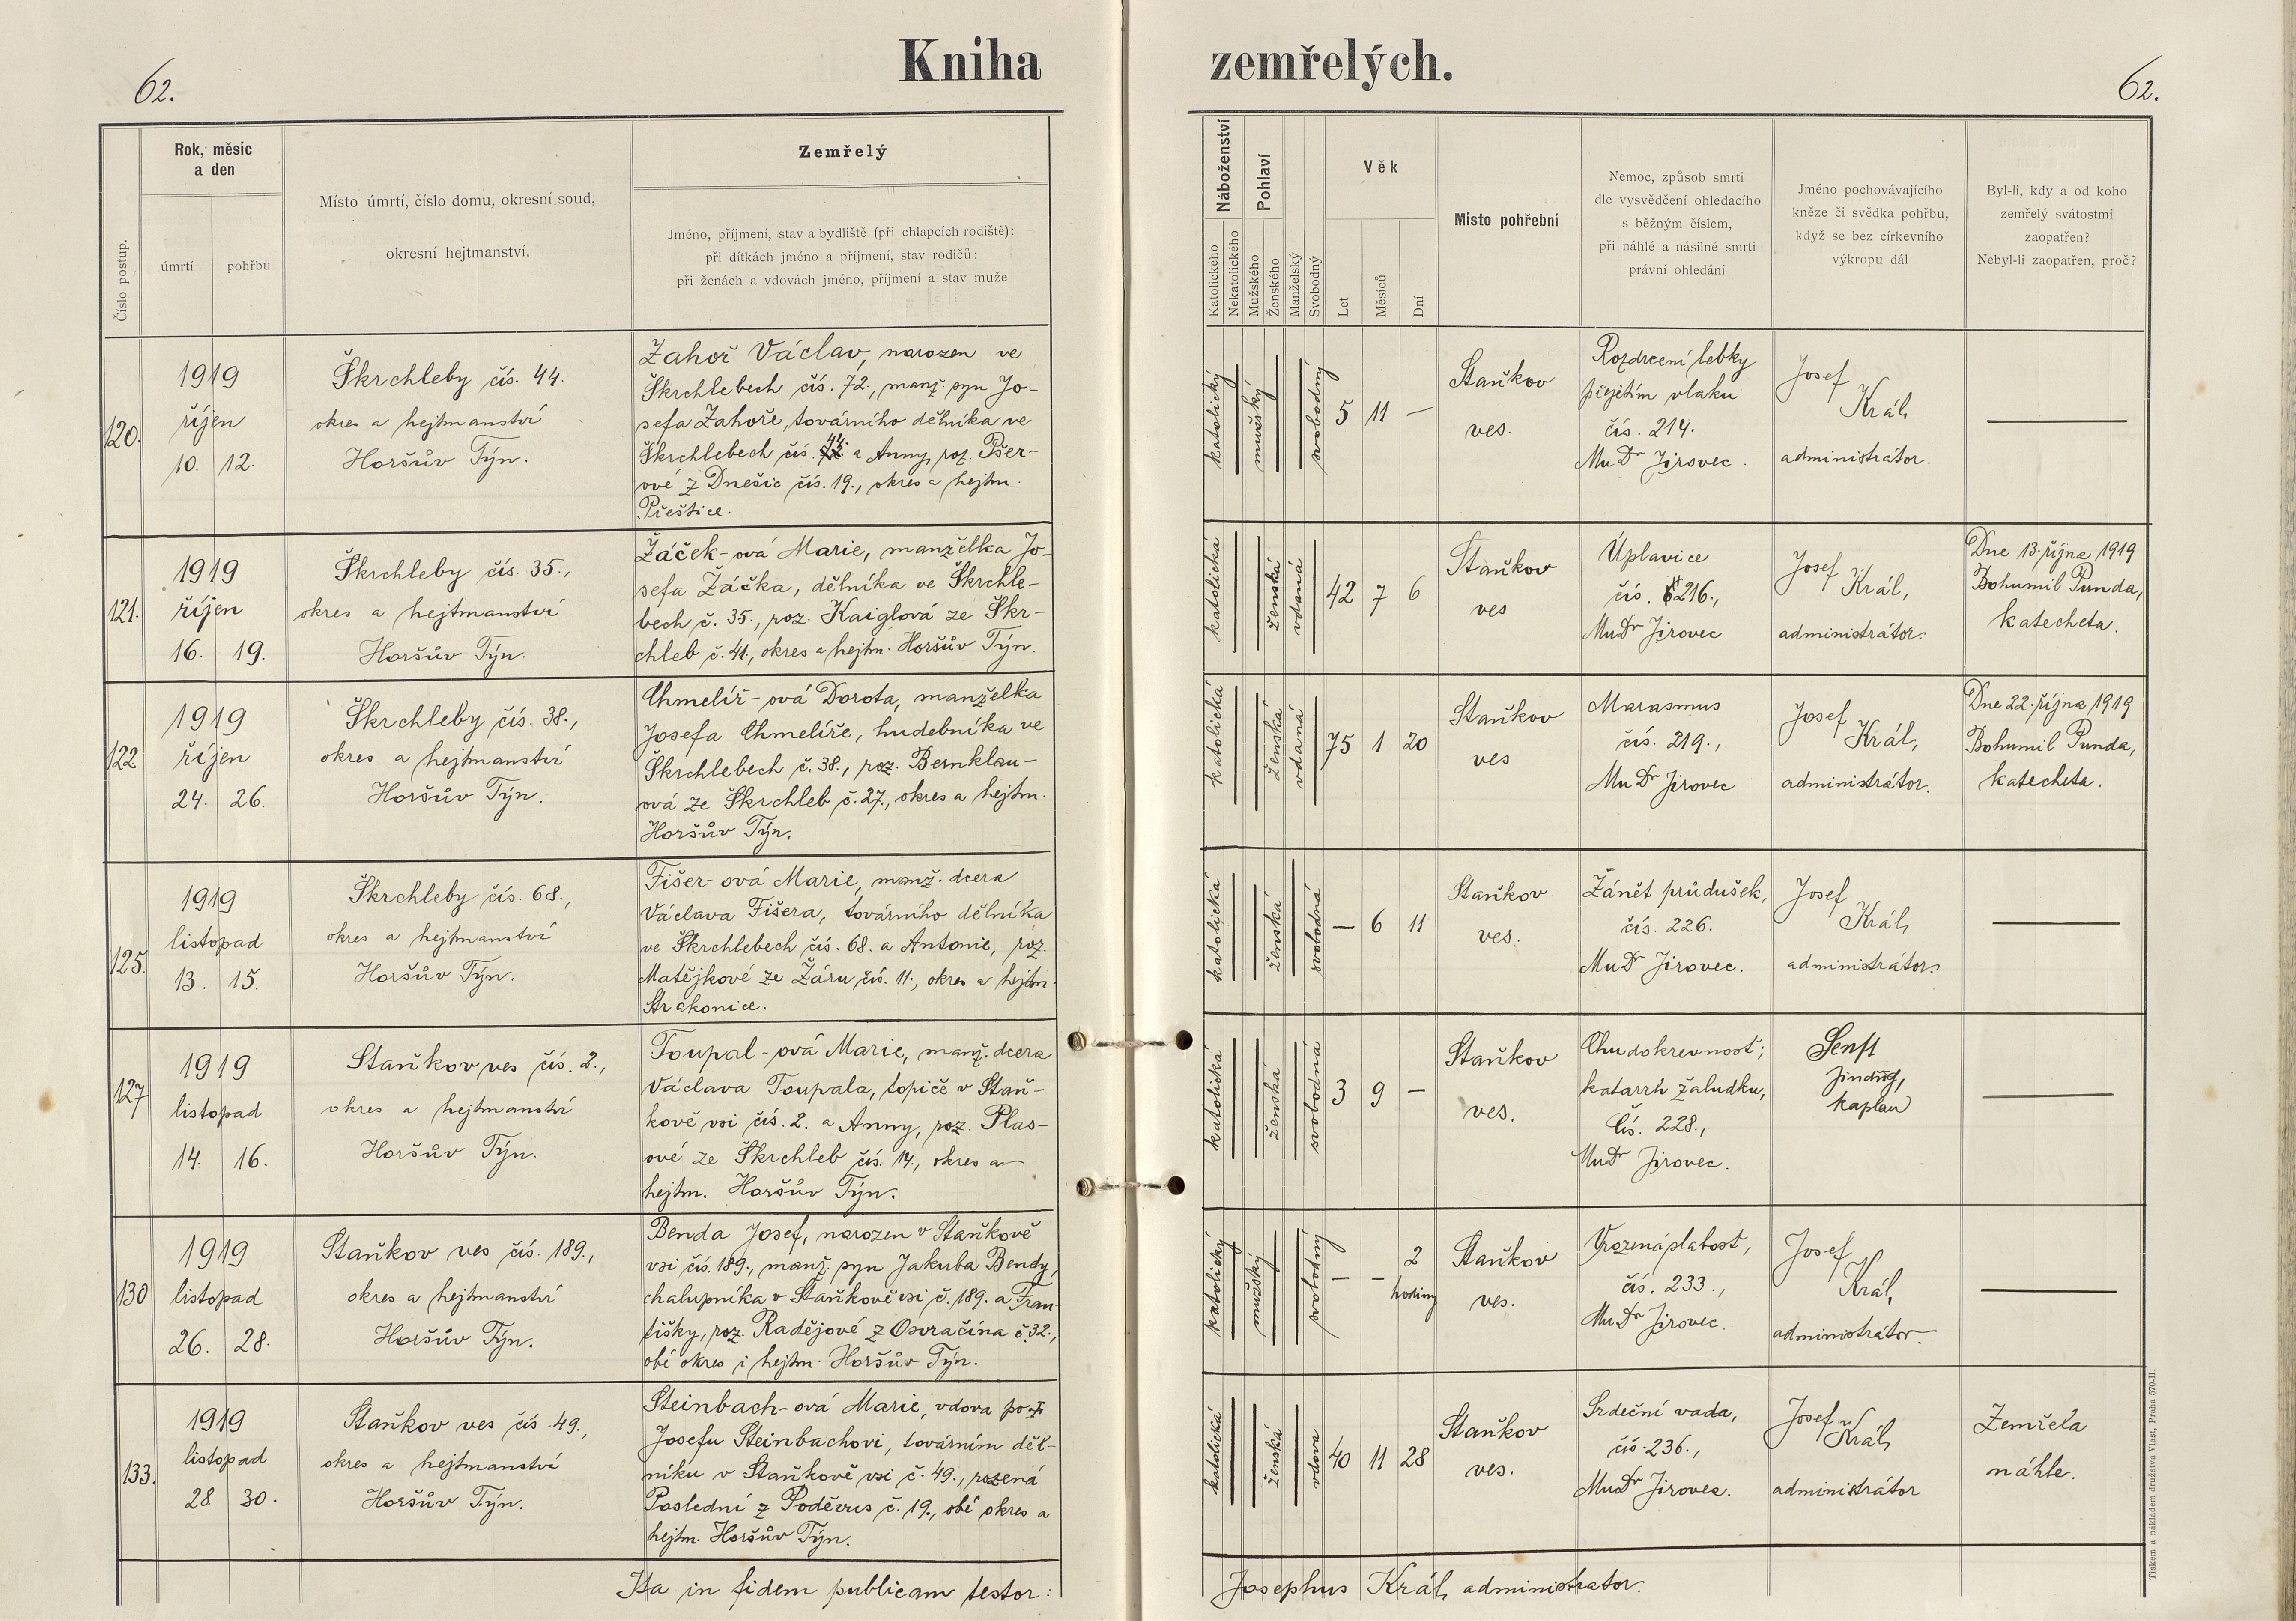 Kniha zemřelých.
62.
62.
Číslo postup.
Rok, měsíc
a den
úmrtí
pohřbu
Místo úmrtí, číslo domu, okresní soud,
okresní hejtmanství.
Zemřelý
Jméno, příjmení, stav a bydliště (při chlapcích rodiště):
při dítkách jméno a příjmení, stav rodičů:
při ženách a vdovách jméno, příjmení a stav muže
Náboženství
Katolického
Nekatolického
Pohlaví
Mužského
Ženského
Manželský
Svobodný
Věk
Let
Měsíců
Dní
Místo pohřební
Nemoc, způsob smrti
dle vysvědčení ohledacího
s běžným číslem,
při náhlé a násilné smrti
právní ohledání
Jméno pochovávajícího
kněze či svědka pohřbu,
když se bez církevního
výkropu dál
Byl-li, kdy a od koho
zemřelý svátostmi
zaopatřen?
Nebyl-li zaopatřen, proč?
120.
1919
říjen
10. 12.
Škrchleby čís. 44.
okres a hejtmanství
Horšův Týn.
Zahoř Václav, narozen ve
Škrchlebech čís. 72., manž. syn Jo-
sefa Zahoře, továrního dělníka ve
Škrchlebech čís. 44. a Anny, roz. Pšer-
ové z Dnešic čís. 19., okres a hejtm.
Přeštice.
katolický
mužský
svobodný
5 11 —
Staňkov
ves.
Rozdrcení lebky
přejetím vlaku
čís. 214.
MuDr Jirovec.
Josef
Král,
administrátor.
—
121.
1919
říjen
16. 19.
Škrchleby čís. 35.,
okres a hejtmanství
Horšův Týn.
Žáček-ová Marie, manželka Jo-
sefa Žáčka, dělníka ve Škrchle-
bech č. 35., roz. Kaiglová ze Škr-
chleb č. 41., okres a hejtm. Horšův Týn.
katolická
ženská
vdaná
42 7 6
Staňkov
ves
Úplavice
čís. 216.,
MuDr Jirovec
Josef
Král,
administrátor.
Dne 13. října 1919
Bohumil Punda,
katecheta.
122
1919
říjen
24. 26.
Škrchleby čís. 38.,
okres a hejtmanství
Horšův Týn.
Chmelíř-ová Dorota, manželka
Josefa Chmelíře, hudebníka ve
Škrchlebech č. 38., roz. Bernklau-
ová ze Škrchleb č. 27., okres a hejtm.
Horšův Týn.
katolická
ženská
vdaná
75 1 20
Staňkov
ves
Marasmus
čís. 219.,
MuDr Jirovec
Josef
Král,
administrátor.
Dne 22. října 1919
Bohumil Punda,
katecheta.
125.
1919
listopad
13. 15.
Škrchleby čís. 68.,
okres a hejtmanství
Horšův Týn.
Fišer-ová Marie, manž. dcera
Václava Fišera, továrního dělníka
ve Škrchlebech čís. 68. a Antonie, roz.
Matějkové ze Žáru čís. 11., okres a hejtm.
Strakonice.
katolická
ženská
svobodná
— 6 11
Staňkov
ves.
Zánět průdušek,
čís. 226.
MuDr Jirovec.
Josef
Král,
administrátor.
—
127
1919
listopad
14. 16.
Staňkov ves čís. 2.,
okres a hejtmanství
Horšův Týn.
Toupal-ová Marie, manž. dcera
Václava Toupala, topiče v Staň-
kově vsi čís. 2. a Anny, roz. Plas-
ové ze Škrchleb čís. 14., okres a
hejtm. Horšův Týn.
katolická
ženská
svobodná
3 9 —
Staňkov
ves.
Chudokrevnost;
katarrh žaludku,
čís. 228.,
MuDr Jirovec.
Senft
Jindřich,
kaplan
—
130
1919
listopad
26. 28.
Staňkov ves čís. 189.,
okres a hejtmanství
Horšův Týn.
Benda Josef, narozen v Staňkově
vsi čís. 189., manž. syn Jakuba Bendy,
chalupníka v Staňkově vsi č. 189. a Fran-
tišky, roz. Radějové z Osvračína č. 32.,
obé okres i hejtm. Horšův Týn.
katolický
mužský
svobodný
— — 2
hodiny
Staňkov
ves.
Vrozená slabost,
čís. 233.,
MuDr Jirovec.
Josef
Král,
administrátor.
—
133.
1919
listopad
28 30.
Staňkov ves čís. 49.,
okres a hejtmanství
Horšův Týn.
Steinbach-ová Marie, vdova po
Josefu Steinbachovi, továrním děl-
níku v Staňkově vsi č. 49., rozená
Poslední z Poděvus č. 19., obé okres a
hejtm. Horšův Týn.
katolická
ženská
vdova
40 11 28
Staňkov
ves.
Srdeční vada,
čís. 236.,
MuDr Jirovec.
Josef
Král,
administrátor
Zemřela
náhle.
Ita in fidem publicam testor: Josephus Král, administrator.
Tiskem a nákladem družstva Vlast, Praha 570-II.